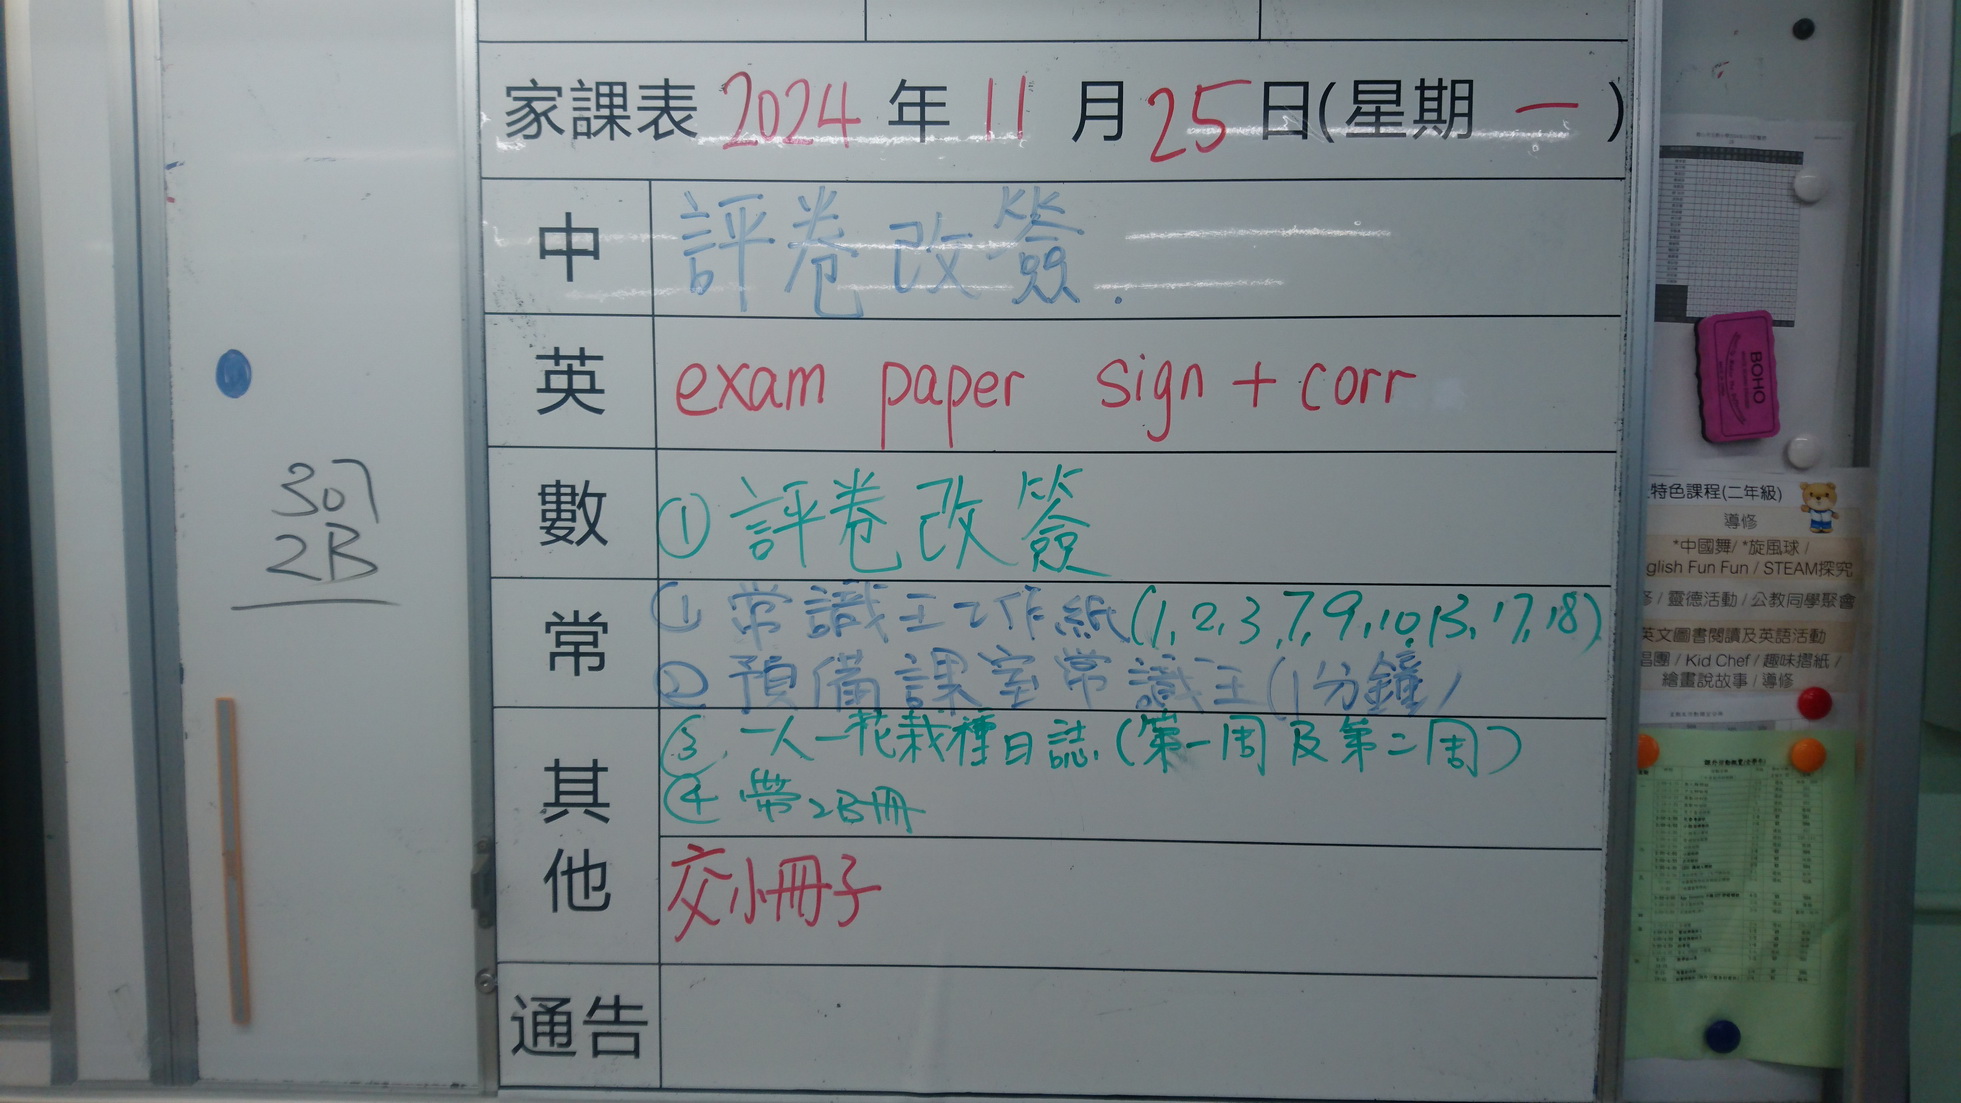 家課表 2024 年 11 月 25 日(星期 一 )
中 評卷改簽.
英 exam paper sign + corr
數 ① 評卷改簽
常 ① 常識王工作紙(1,2,3,7,9,10,13,17,18)
② 預備課室常識王(1分鐘)
其他 ③ 一人一花栽種日誌(第一周及第二周)
④ 帶2B冊
交小冊子
通告
307
2B
特色課程(二年級)
導修
*中國舞/ *旋風球 /
glish Fun Fun / STEAM探究
/ 靈德活動 / 公教同學聚會
英文圖書閱讀及英語活動
唱團 / Kid Chef / 趣味摺紙 /
繪畫說故事 / 導修
BOHO